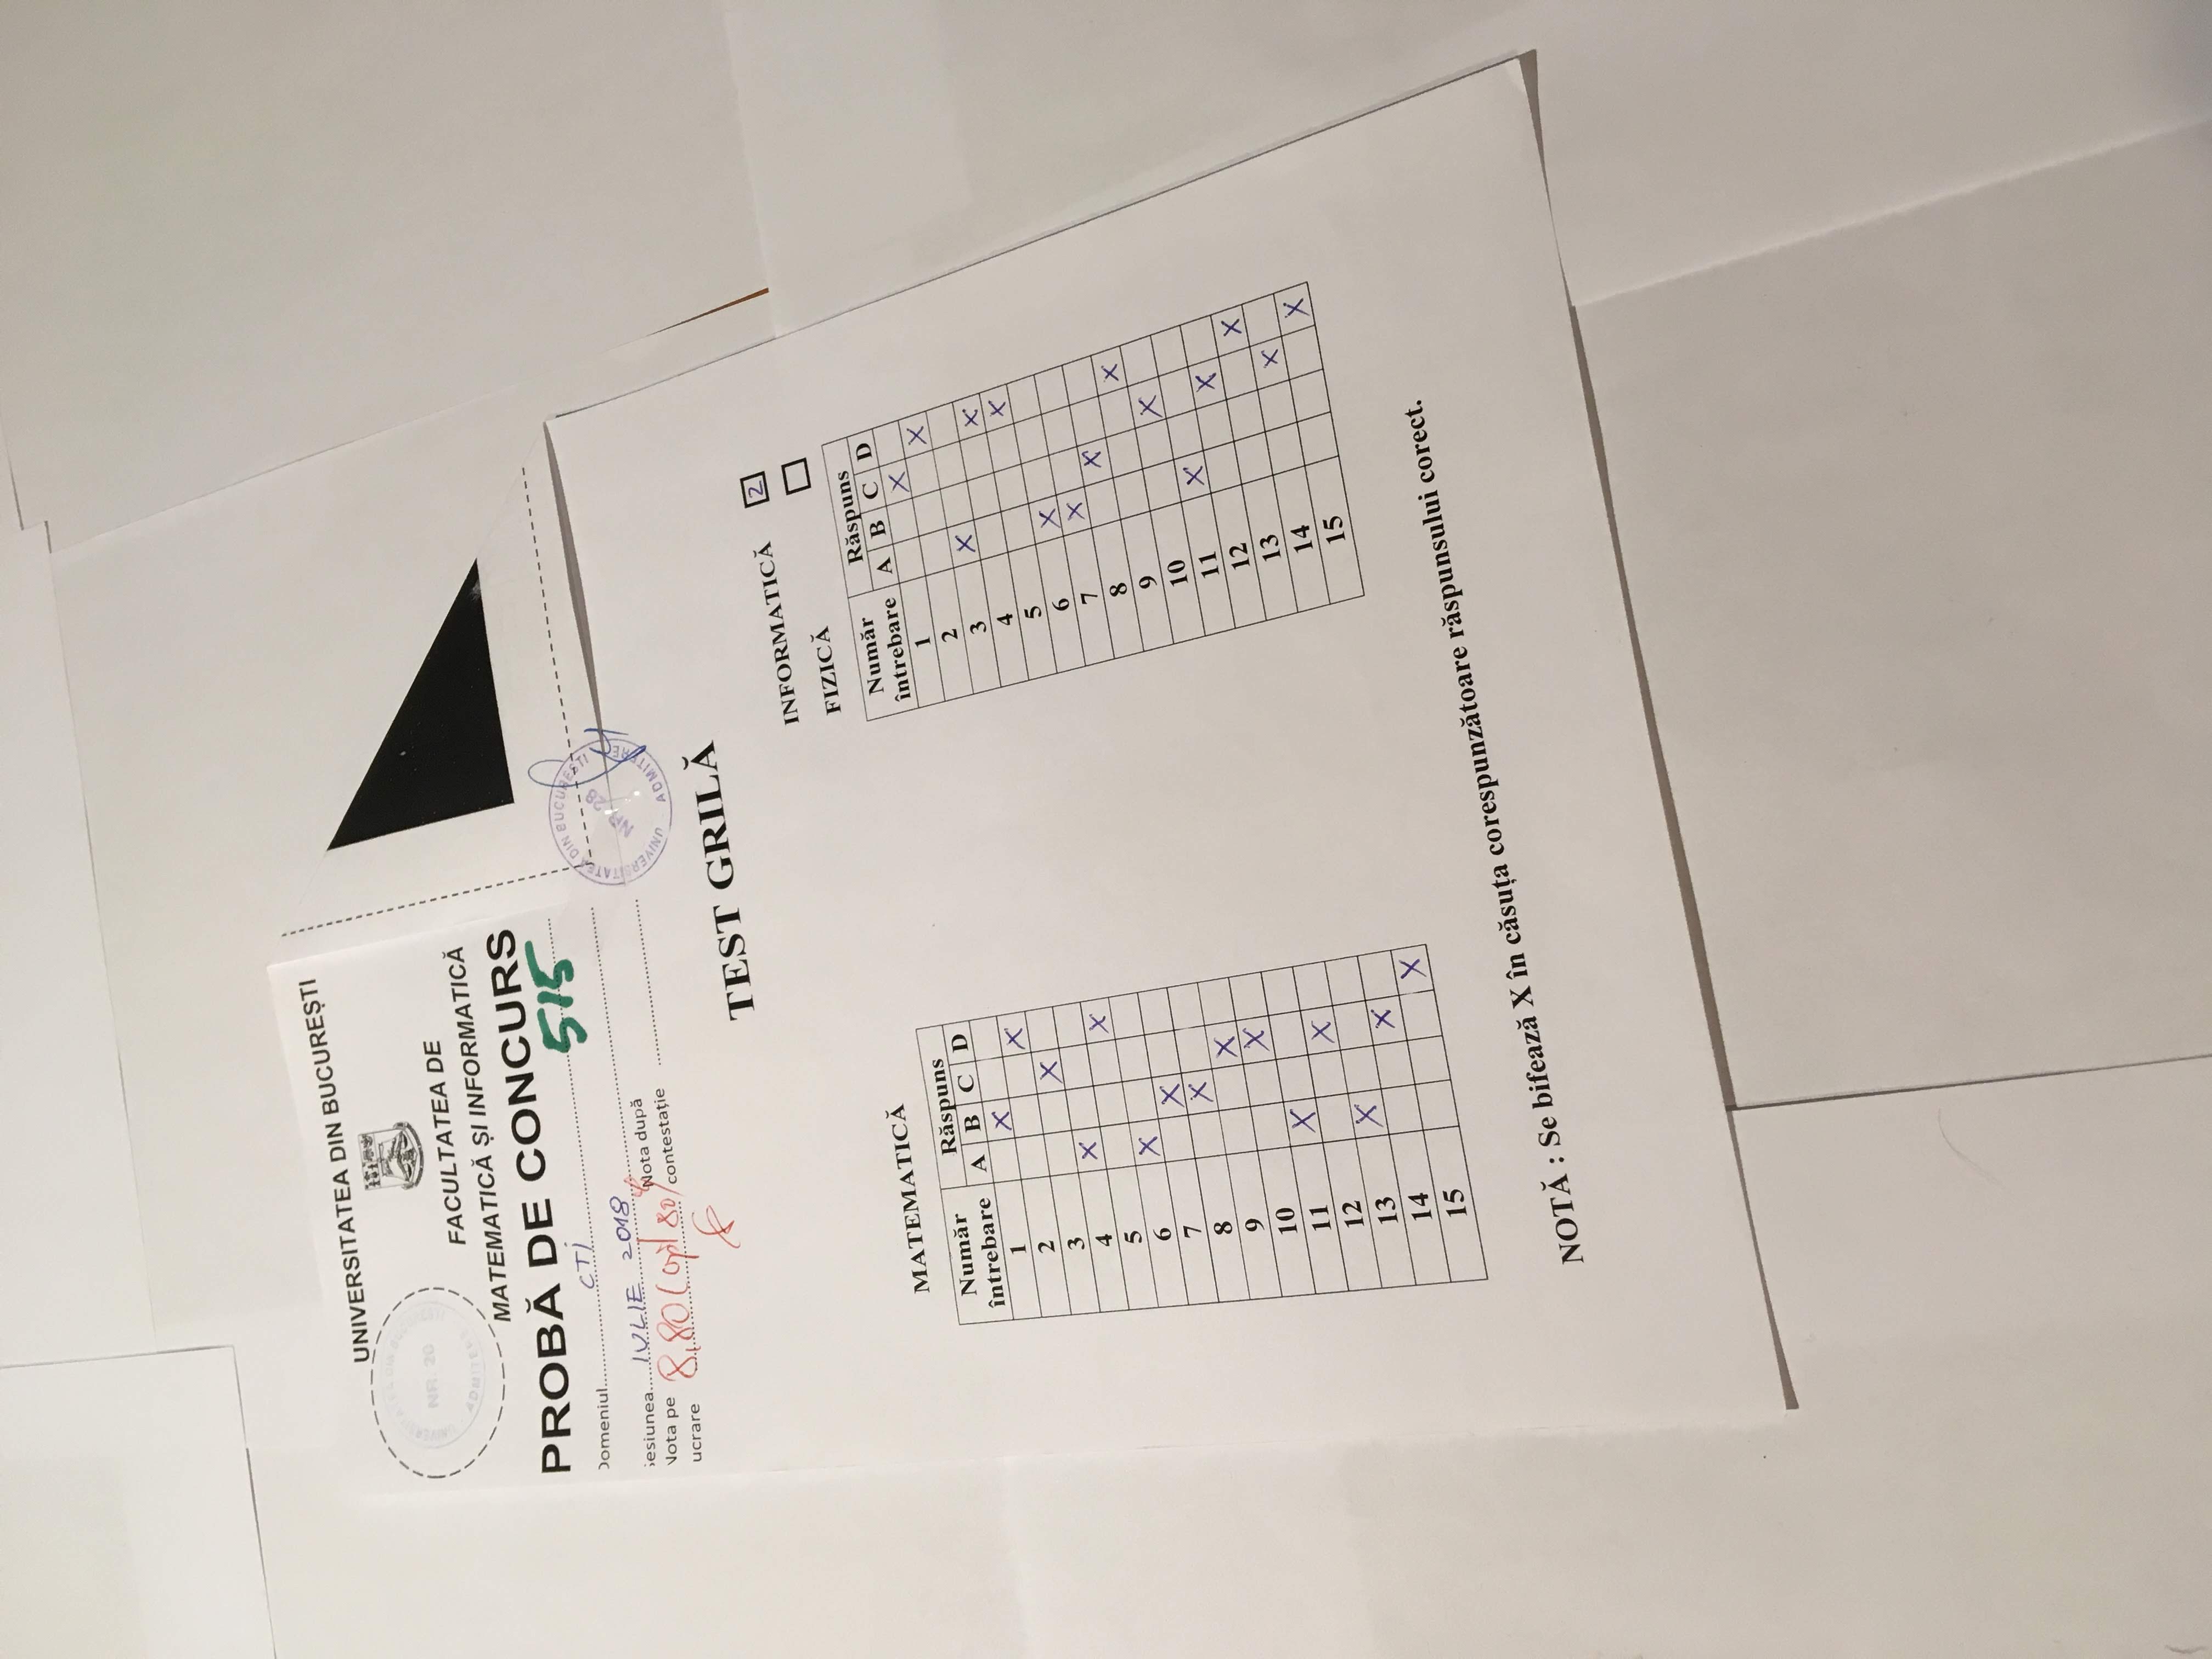 UNIVERSITATEA DIN BUCUREȘTI
UNIVERSITATEA DIN BUCUREȘTI
NR. 28
ADMITERE
FACULTATEA DE
MATEMATICĂ ȘI INFORMATICĂ
PROBĂ DE CONCURS
515
Domeniul CTI
Sesiunea IULIE 2018
Nota pe
lucrare 8,80 (opt 80%
Nota după
contestație
UNIVERSITATEA DIN BUCUREȘTI
NR. 28
ADMITERE
TEST GRILĂ
INFORMATICĂ 2
FIZICĂ
MATEMATICĂ
Număr
întrebare
Răspuns
A B C D
1 X
2 X
3 X
4 X
5 X
6 X
7 X
8 X
9 X
10 X
11 X
12 X
13 X
14 X
15 X
Număr
întrebare
Răspuns
A B C D
1 X
2 X
3 X
4 X
5 X
6 X
7 X
8 X
9 X
10 X
11 X
12 X
13 X
14 X
15 X
NOTĂ : Se bifează X în căsuța corespunzătoare răspunsului corect.